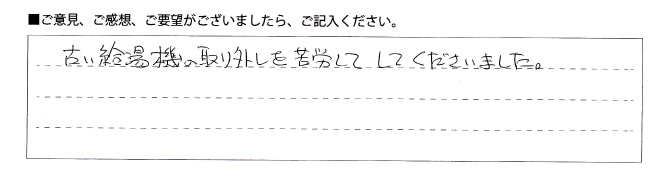 ■ご意見、ご感想、ご要望がございましたら、ご記入ください。
古い給湯機の取り外しを苦労して してくださいました。